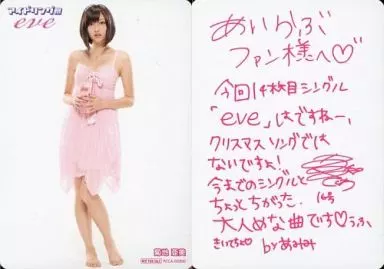 アイドリング!!!
eve
菊地 亜美
あいらぶ
ファン様へ♡
今回14枚目シングル
「eve」はですねー、
クリスマスソングでは
ないですよ!
今までのシングルと
ちょっとちがった
16号
大人めな曲です♡うふ
きいてちょ♡ byあみみ